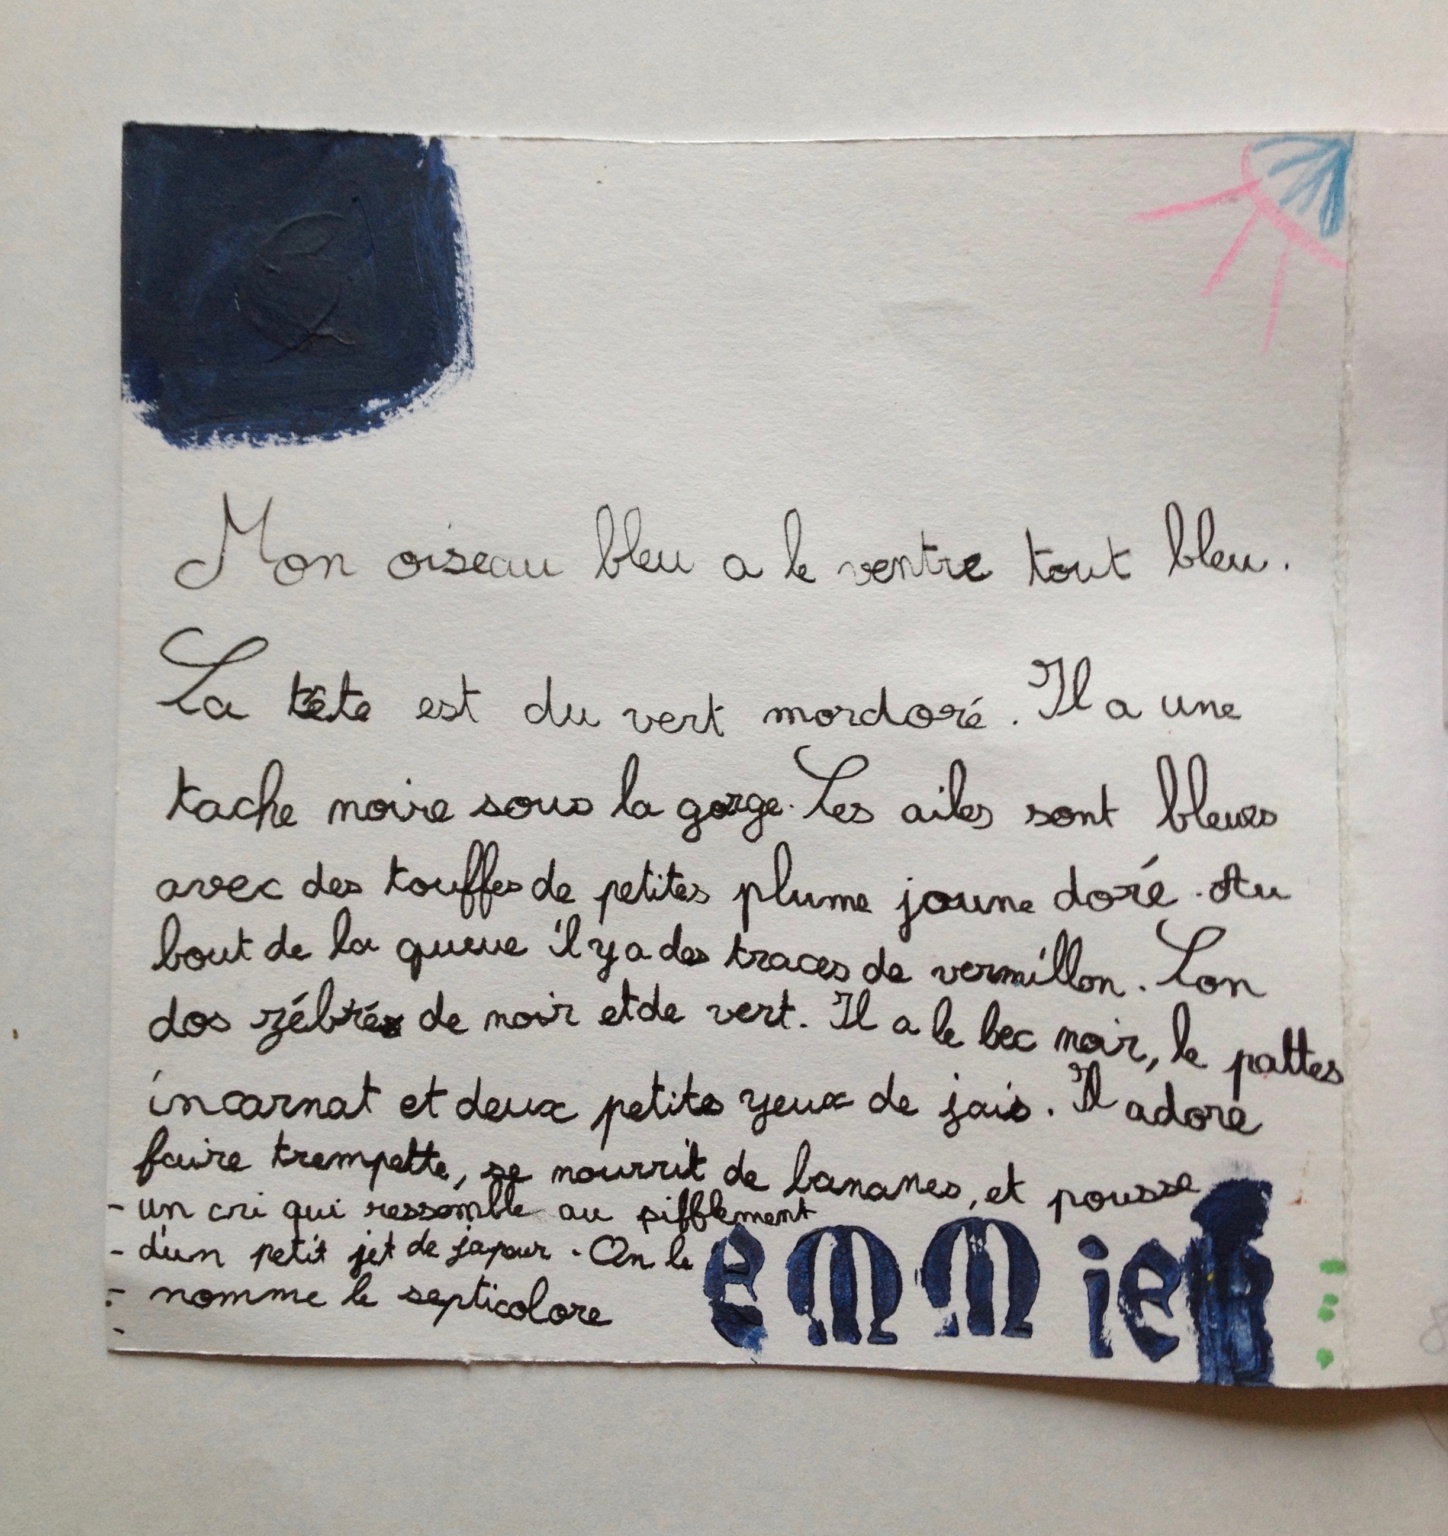 Mon oiseau bleu a le ventre tout bleu.
La tête est du vert mordoré. Il a une
tache noire sous la gorge. Les ailes sont bleues
avec des touffes de petites plume joune doré. Au
bout de la queue il y a des traces de vermillon. Son
dos zébrés de noir et de vert. Il a le bec noir, le pattes
incarnat et deux petits yeux de jais. Il adore
faire trempette, se nourrit de bananes, et pousse
- un cri qui ressemble au sifflement
- d'un petit jet de vapeur. On le
- nomme le septicolore
emmie